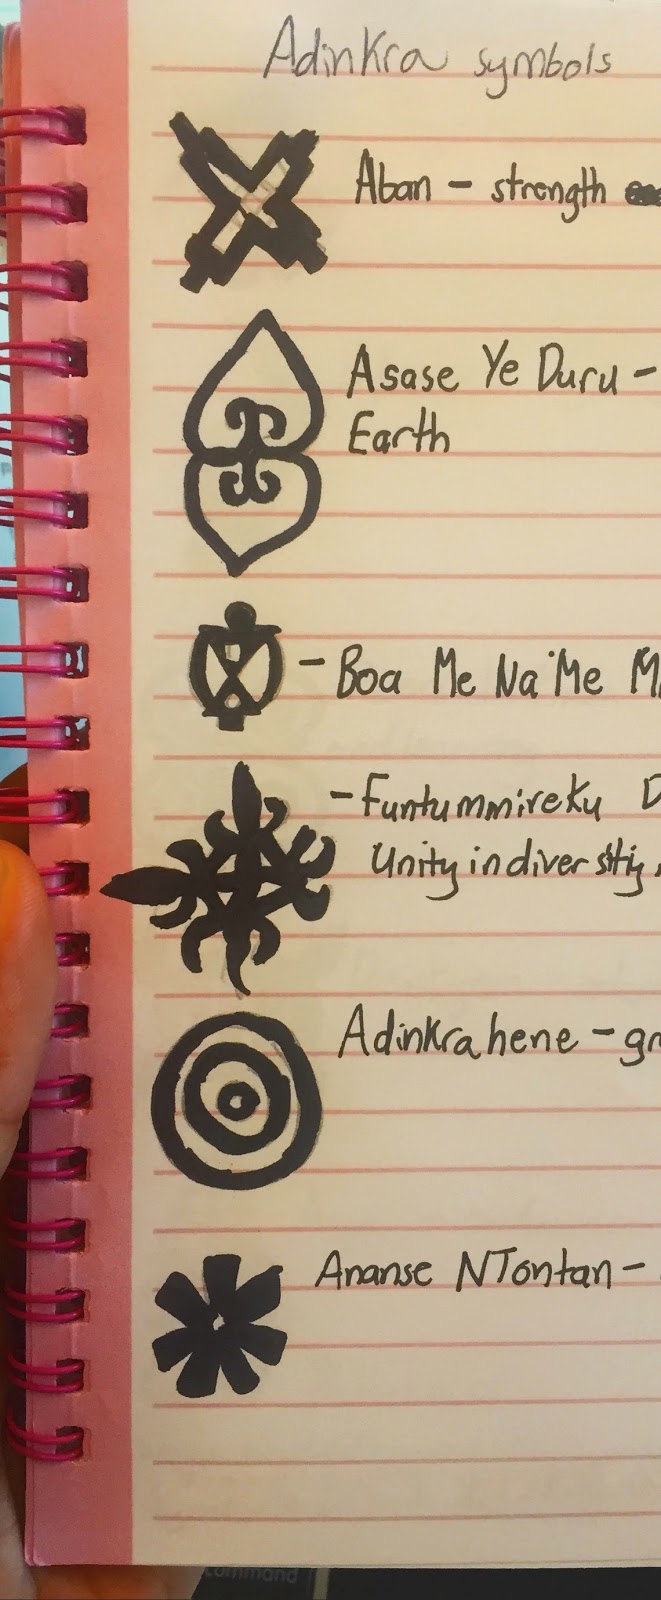 Adinkra symbols
Aban - strength
Asase Ye Duru -
Earth
- Boa Me Na Me
- Funtummireku D
Unity in diversitiy
Adinkrahene - gr
Ananse NTontan -
command